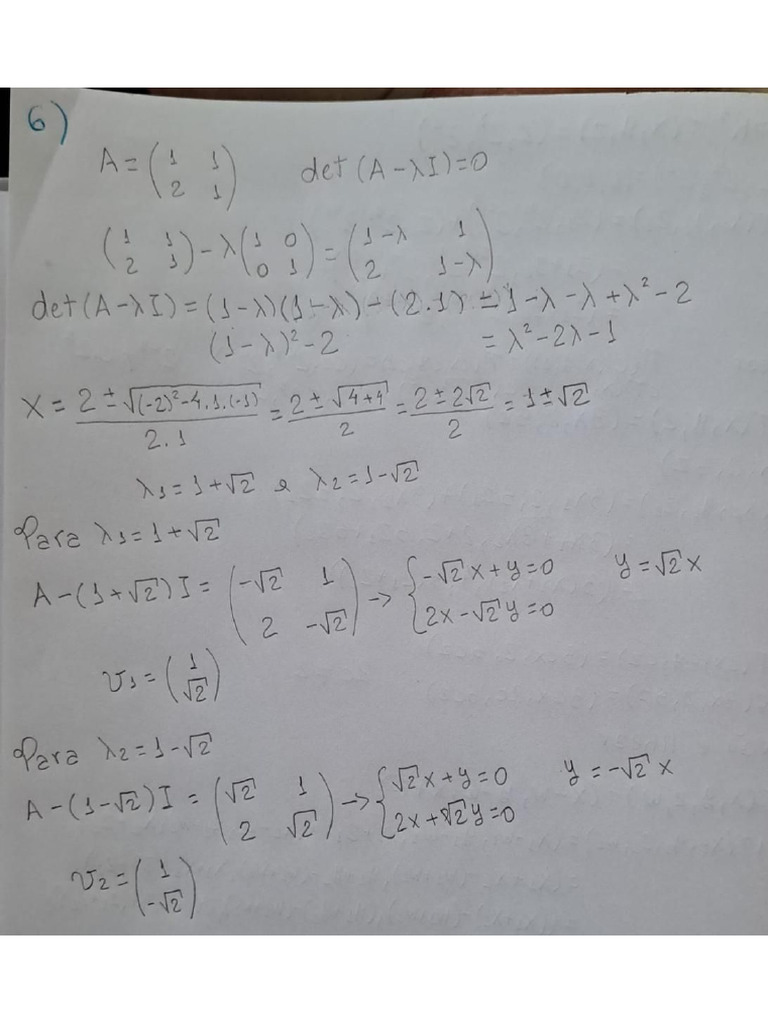 6)
A = (1 1; 2 1)   det(A - λI) = 0
(1 1; 2 1) - λ(1 0; 0 1) = (1-λ 1; 2 1-λ)
det(A - λI) = (1-λ)(1-λ) - (2.1) = 1 - λ - λ + λ² - 2
(1-λ)² - 2   = λ² - 2λ - 1
X = (2 ± √((-2)² - 4.1.(-1)))/(2.1) = (2 ± √(4+4))/2 = (2 ± 2√2)/2 = 1 ± √2
λ1 = 1 + √2 e λ2 = 1 - √2
Para λ1 = 1 + √2
A - (1+√2)I = (-√2 1; 2 -√2) → { -√2x + y = 0; 2x - √2y = 0   y = √2x
v1 = (1; √2)
Para λ2 = 1 - √2
A - (1-√2)I = (√2 1; 2 √2) → { √2x + y = 0; 2x + √2y = 0   y = -√2x
v2 = (1; -√2)